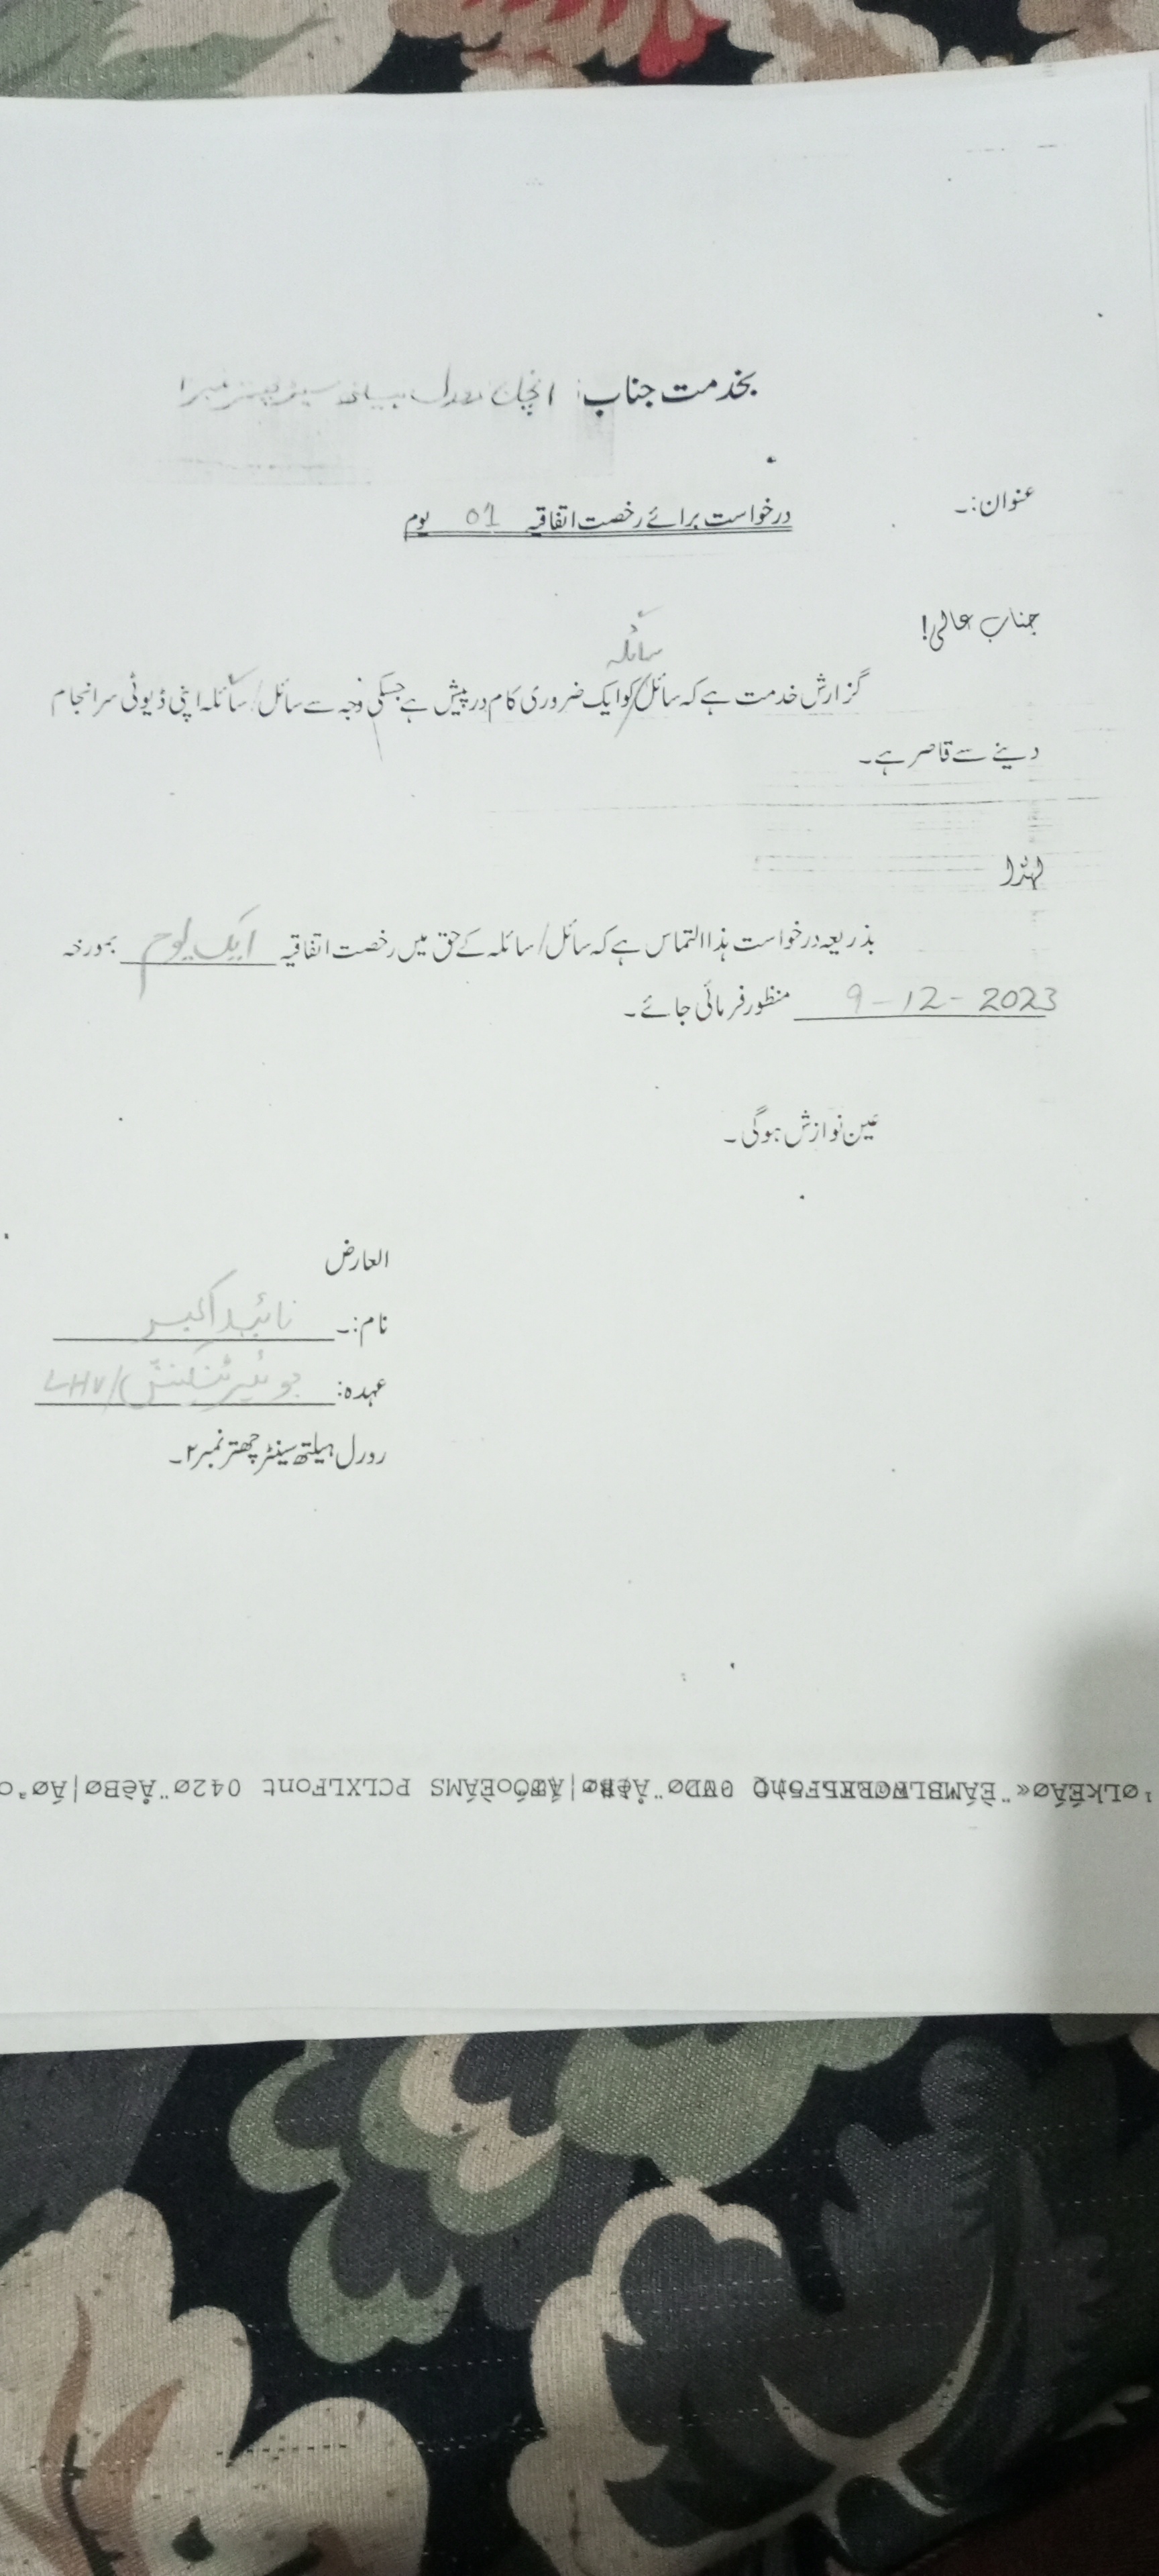 بخدمت جناب: انچارج رورل ہیلتھ سینٹر چھتر نمبر۲
عنوان:۔
درخواست برائے رخصت اتفاقیہ 01 یوم
جناب عالی!
سائلہ
گزارش خدمت ہے کہ سائل/کو ایک ضروری کام درپیش ہے جسکی وجہ سے سائل/سائلہ اپنی ڈیوٹی سرانجام
دینے سے قاصر ہے۔
لہذا
بذریعہ درخواست ہذا التماس ہے کہ سائل/سائلہ کے حق میں رخصت اتفاقیہ ایک یوم بمورخہ
9-12-2023 منظور فرمائی جائے۔
عین نوازش ہوگی۔
العارض
نام:۔ ناہید اکبر
عہدہ: جونیئر ٹیکنیشن/LHV
رورل ہیلتھ سینٹر چھتر نمبر۲۔
PCLXLFont 042ø